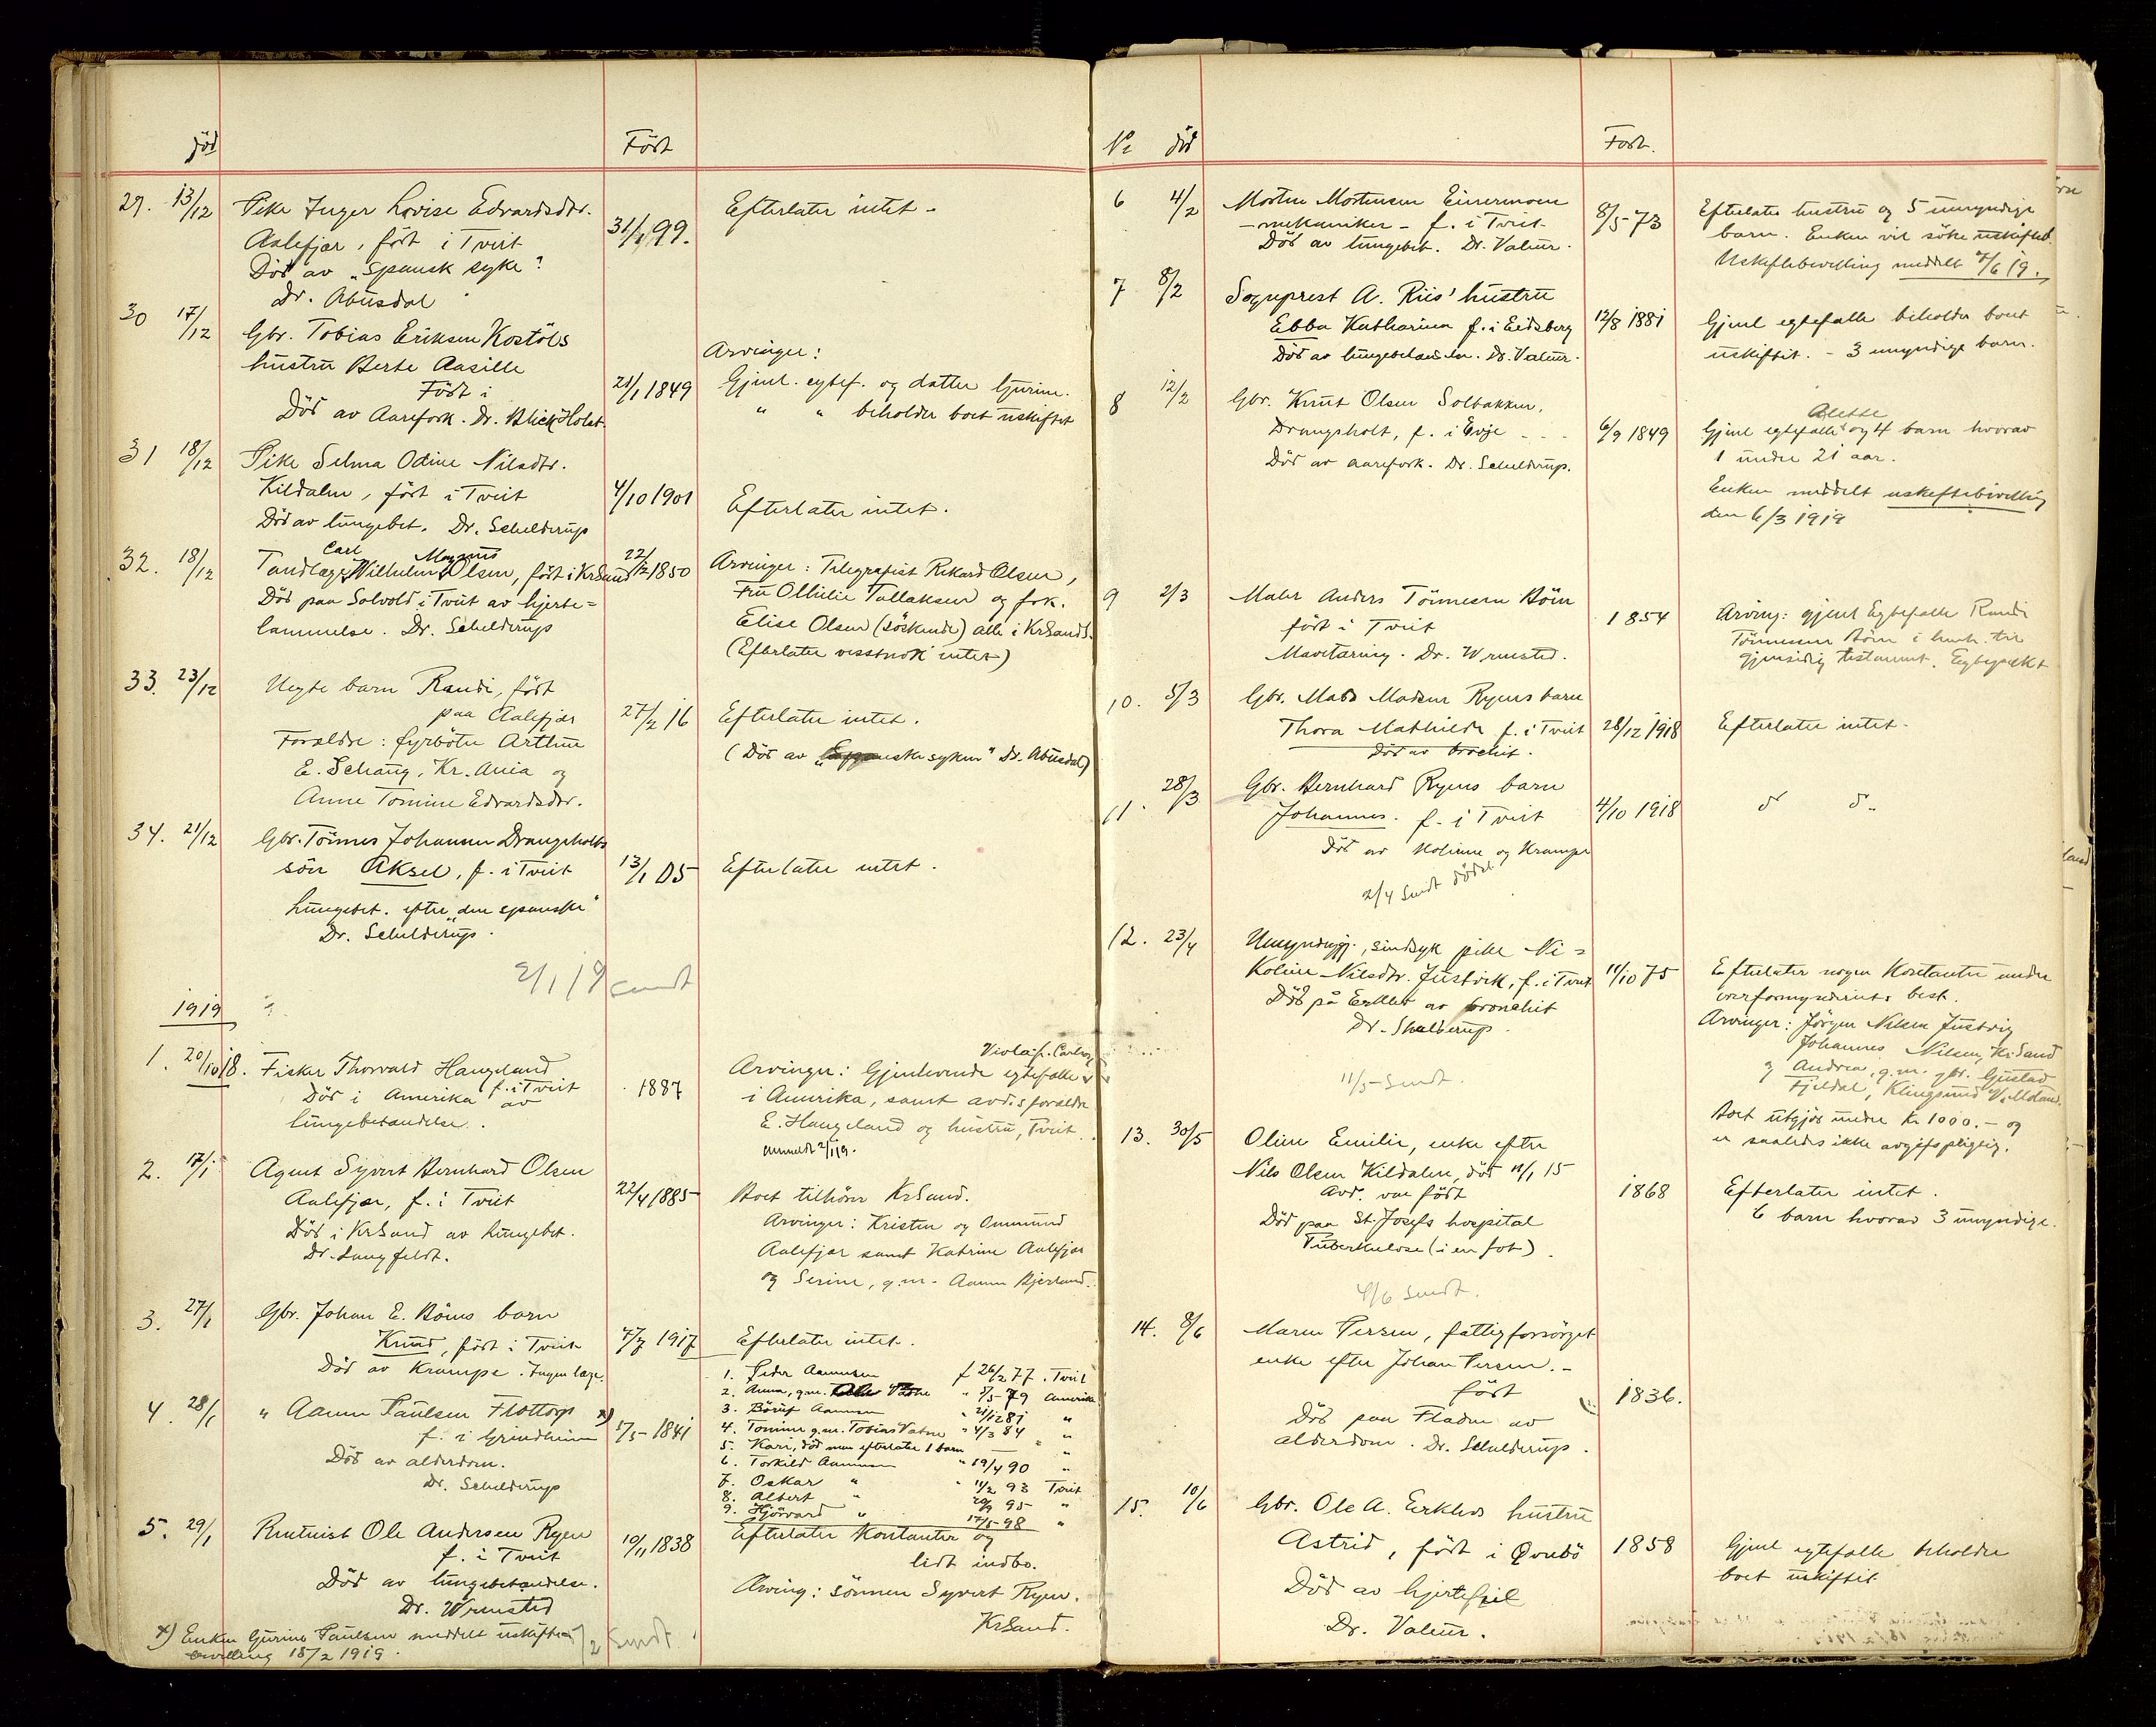 död Född
29. 13/12 Pike Inger Lovise Edvardsdtr. 31/1 99. Efterlater intet -
Aalefjær, född i Tveit
Död av „Spansk syke“?
Dr. Abusdal
30 17/12 Gbr. Tobias Eriksen Kostöls
hustru Berte Aasille Arvinger:
Född i 21/1 1849 Gjenl. egtef. og datter Gurine.
Död av Aarefork. Dr. Blick Holst. " " beholder boet uskiftet
31 18/12 Pike Selma Odine Nilsdtr.
Kildalen, född i Tveit 4/10 1901 Efterlater intet.
Död av lungebet. Dr. Schelderup
Carl Magnus
32. 18/12 Tandlæge Wilhelm Olsen, född i KrSand 22/12 1850 Arvinger: Telegrafist Rikard Olsen,
Död paa Solvold i Tveit av hjerte= Fru Ollilie Tallaksen og frk.
lammelse. Dr. Schelderup Elise Olsen (söskende) alle i KrSand S.
(Efterlater visstnok intet)
33. 23/12 Uegte barn Randi, född
paa Aalefjær 27/2 16 Efterlater intet.
Foreldre: fyrböter Arthur (Död av „spanske syken“ Dr. Abusdal)
E. Schaug, Kr.ania og
Anne Tomine Edvardsdtr.
34. 21/12 Gbr. Tönnes Johannsen Drangsholts
sön Aksel, f. i Tveit 13/1 05 Efterlater intet.
Lungebet. efter „den spanske“
Dr. Schelderup.
2/1 19 sendt
1919
1. 20/10 18. Fisker Thorvald Haugeland 1887 Arvinger: Gjenlevende egtefelle
Viola f. Carlson
Död i Amerika f. i Tveit av i Amerika, samt avd.s foreldre
lungebetændelse. E. Haugeland og hustru, Tveit.
anmeldt 2/1 19.
2. 17/1 Agent Syvert Bernhard Olsen
Aalefjær, f. i Tveit 22/4 1885 Boet tilhörer KrSand.
Död i KrSand av lungebet. Arvinger: Kristen og Ommund
Dr. Langfeldt. Aalefjær samt Katrine Aalefjær
og Serine, g.m. Aanen Bjerland.
3. 27/1 Gbr. Johan E. Böens barn
Knud, född i Tveit 4/7 1917 Efterlater intet.
Död av Krampe. Ingen læge.
4. 28/1 " Aanen Paulsen Flottorp x) 17/5 1841
f. i Grindheim
Död av alderdom.
Dr. Schelderup
1. Peder Aanensen f 26/2 77. Tveit
2. Anna, g.m. Vatne " 7/5 79 Amerika
3. Börüf Aanensen " 21/12 81 "
4. Tomine g.m. Tobias Vatne " 4/3 84 "
5. Kari, död men efterlater 1 barn — " "
6. Torkild Aanensen " 19/4 90 "
7. Oskar " " 11/2 93 Tveit
8. Albert " 20/9 95 "
9. Hjörvard " 17/5 98 "
5. 29/1 Rentenist Ole Andersen Ryen 10/11 1838 Efterlater Kontanter og
f. i Tveit lidt indbo.
Död av lungebetændelse. Arving: sönnen Syvert Ryen.
Dr. Wrensted KrSand.
x) Enken Gurine Paulsen meddelt uskifte-
bevilling 18/2 1919. /2 sendt
No död Född.
6 4/2 Morten Mortensen Einermoen 8/5 73 Efterlater hustru og 5 umyndige
-mekaniker- f. i Tveit- barn. Enken vil söke uskifteb.
Död av lungebet. Dr. Valeur. Uskiftebevilling meddelt 7/6 19.
7 8/2 Sogneprest A. Riis' hustru
Ebba Katharina f. i Eidsberg 12/8 1881 Gjenl egtefelle beholder boet
Död av lungebetændelse. Dr. Valeur. uskiftet. - 3 umyndige barn.
8 12/2 Gbr. Knut Olsen Solbakken,
Alette
Drangsholt, f. i Evje - - - 6/9 1849 Gjenl egtefelle og 4 barn hvorav
Död av aarefork. Dr. Schelderup. 1 under 21 aar.
Enken meddelt uskiftebevilling
den 6/3 1919
9 2/3 Maler Anders Tönnesen Böen 1854 Arving: gjenl Egtefelle Randi
född i Tveit Tönnesen Böen i henh. til
Mavetæring. Dr. Wrensted. gjensidig testament. Egtepakt
10. 5/3 Gbr. Mads Madsen Ryens barn
Thora Mathilde f. i Tveit 28/12 1918 Efterlater intet.
Död av brochit.
11. 28/3 Gbr. Bernhard Ryens barn
Johannes. f. i Tveit 4/10 1918 d d.
Död av Kolerine og Krampe
2/4 Sendt dödsl.
12. 23/4 Umyndiggj., sindsyk pike Ni=
Koline Nilsdtr. Justvik, f. i Tveit 11/10 75 Efterlater nogen Kontanter under
Död på Erkleb av bronchit overformynderiets best.
Dr. Skelderup. Arvinger: Jörgen Nilsen Justvig
Johannes Nilsen, KrSand
11/5 Sendt. og Andrea, g.m. gbr. Gustad
Fjeldal, Klingsund
Boet utgjör under Kr 1000.- og
er saaledes ikke avgifspligtig.
13. 30/5 Oline Emilie, enke efter
Nils Olsen Kildalen, död 11/1 15
Avd. var född 1868 Efterlater intet.
Död paa St. Josefs hospital 6 barn hvorav 3 umyndige.
Tuberkulose (i en fot).
4/6 Sendt.
14. 8/6 Maren Persen, fattigforsörget
enke efter Johan Persen. -
född 1836.
Död paa Fladen av
alderdom. Dr. Schelderup.
15. 10/6 Gbr. Ole A. Erklevs hustru
Astrid, född i Øvrebö 1858 Gjenl egtefelle beholder
Död av hjertefeil boet uskiftet.
Dr. Valeur.